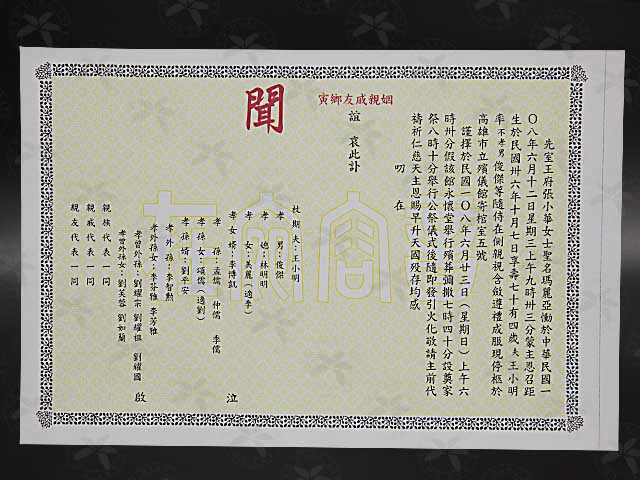 先室王府張小華女士聖名瑪麗亞慟於中華民國一
〇八年六月十二日星期三上午九時卅三分蒙主恩召距
生於民國卅六年十月七日享壽七十有四歲 夫王小明
率 不孝男 俊傑等隨侍在側親視含斂遵禮成服現停柩於
高雄市立殯儀館寄棺室五號
謹擇於民國一〇八年六月廿三日（星期日）上午六
時卅分假該館永懷堂舉行殯葬彌撒七時四十分設奠家
祭八時十分舉行公祭儀式後隨即發引火化敬請主前代
禱祈仁慈天主恩賜早升天國歿存均感
叨 在
誼 哀此訃
寅鄉友戚親姻
聞
杖期夫：王小明
孝 男：俊傑
孝 媳：林明明
孝 女：美麗（適李）
孝女婿：李博凱
孝 孫：孟儒 仲儒 季儒
孝孫女：頌儒（適劉）
孝孫婿：劉平安
孝外孫：李智勳
孝外孫女：李芬雅 李芳雅
孝曾外孫：劉耀宗 劉耀祖 劉耀國
孝曾外孫女：劉芙蓉 劉如蘭
親族代表一同
親戚代表一同
親友代表一同
泣
啟